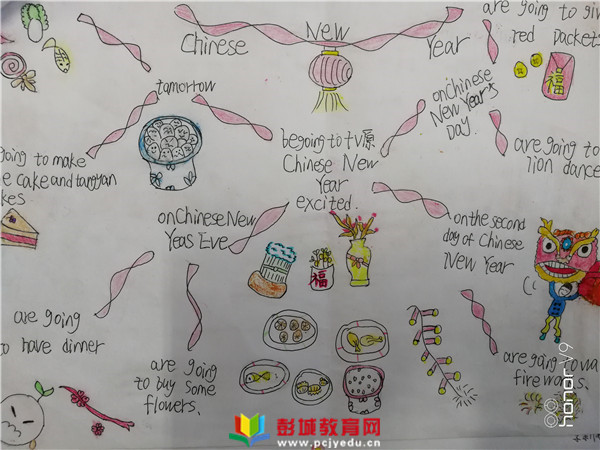 Chinese New Year
are going to giv
red packets
福
tomorrow
on Chinese
New Year's
Day.
going to make
e cake and tangyan
kes
be going to tv原
Chinese New
Year
excited.
are going to
lion dance
on Chinese New
Yeas Eve
福
on the second
day of Chinese
New Year
are going
to have dinner
are going
to buy some
flowers.
are going to wa
fireworks.
彭城教育网
www.pcjyedu.cn
honor V9